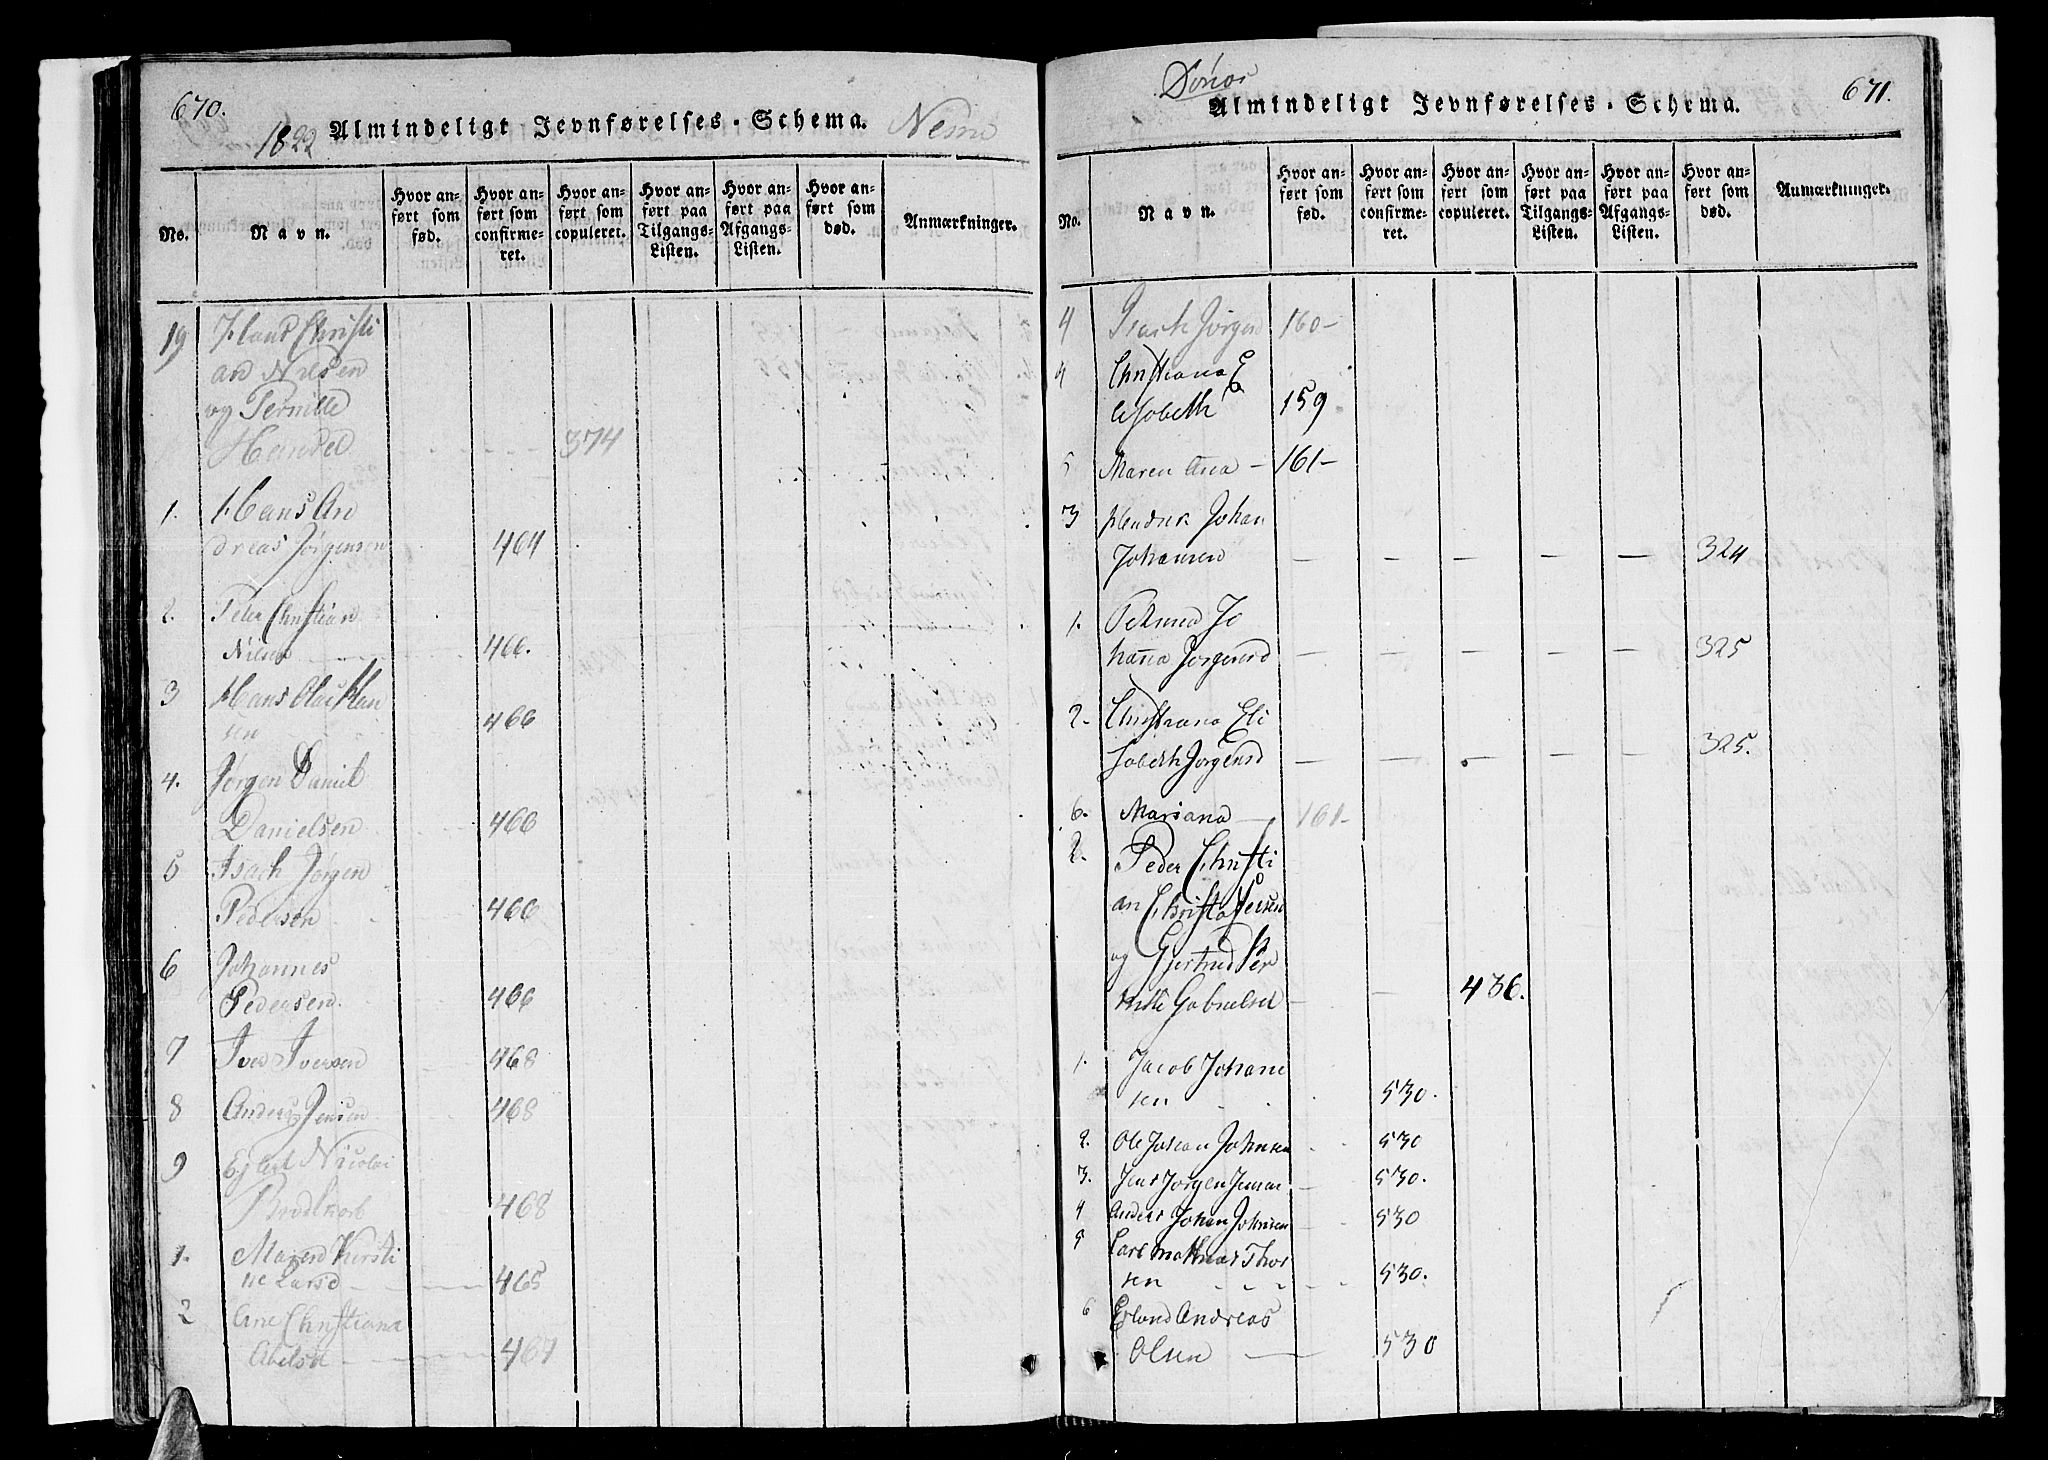 670.
1822
Almindeligt Jevnførelses-Schema.
Nesne
No.
Navn.
Hvor an-
ført som
fød.
Hvor an-
ført som
confirme-
ret.
Hvor an-
ført som
copuleret.
Hvor an-
ført paa
Tilgangs-
Listen.
Hvor an-
ført paa
Afgangs-
Listen.
Hvor an-
ført som
død.
Anmærkninger.
19 Hans Christi
an Nilsen
og Pernille
Hansd 374
1. Hans An
dreas Jørgensen 464
2. Peter Christian
Nilsen 466.
3 Hans Olai Han
sen 466
4. Jørgen Daniel
Danielsen 466
5 Isach Jørgen
Pedersen 466
6 Johannes
Pedersen 466
7 Iver Iversen 468
8 Anders Jensen 468
9 Ejlert Nicolai
Brodtkorb 468
1. Maren Kirsti
ne Larsd 465
2 Ane Christiana
Abelsd 467
Dønnes
Almindeligt Jevnførelses-Schema.
671.
No.
Navn.
Hvor an-
ført som
fød.
Hvor an-
ført som
confirme-
ret.
Hvor an-
ført som
copuleret.
Hvor an-
ført paa
Tilgangs-
Listen.
Hvor an-
ført paa
Afgangs-
Listen.
Hvor an-
ført som
død.
Anmærkninger.
4 Isach Jørgen 160-
4 Christiana E
lisabeth 159
5 Maren Ana - 161-
3 Hendrik Johan
Johansen — — — — — 324
1. Petrinea Jo
hana Jørgensd — — — — — 325
2- Christiana Eli
sabeth Jørgensd — — — — 325.
6. Mariana 161-
2. Peder Christi
an Christophersen
og Gjertrud Per
nille Gabrielsd — — 436.
1. Jacob Johane
sen 530.
2. Ole Johan Johnsen 530
3. Jens Jørgen Jensen 530.
4 Anders Johan Johnsen 530
5 Carl Mathias Thor
sen 530.
6 Erlund Andreas
Olsen 530